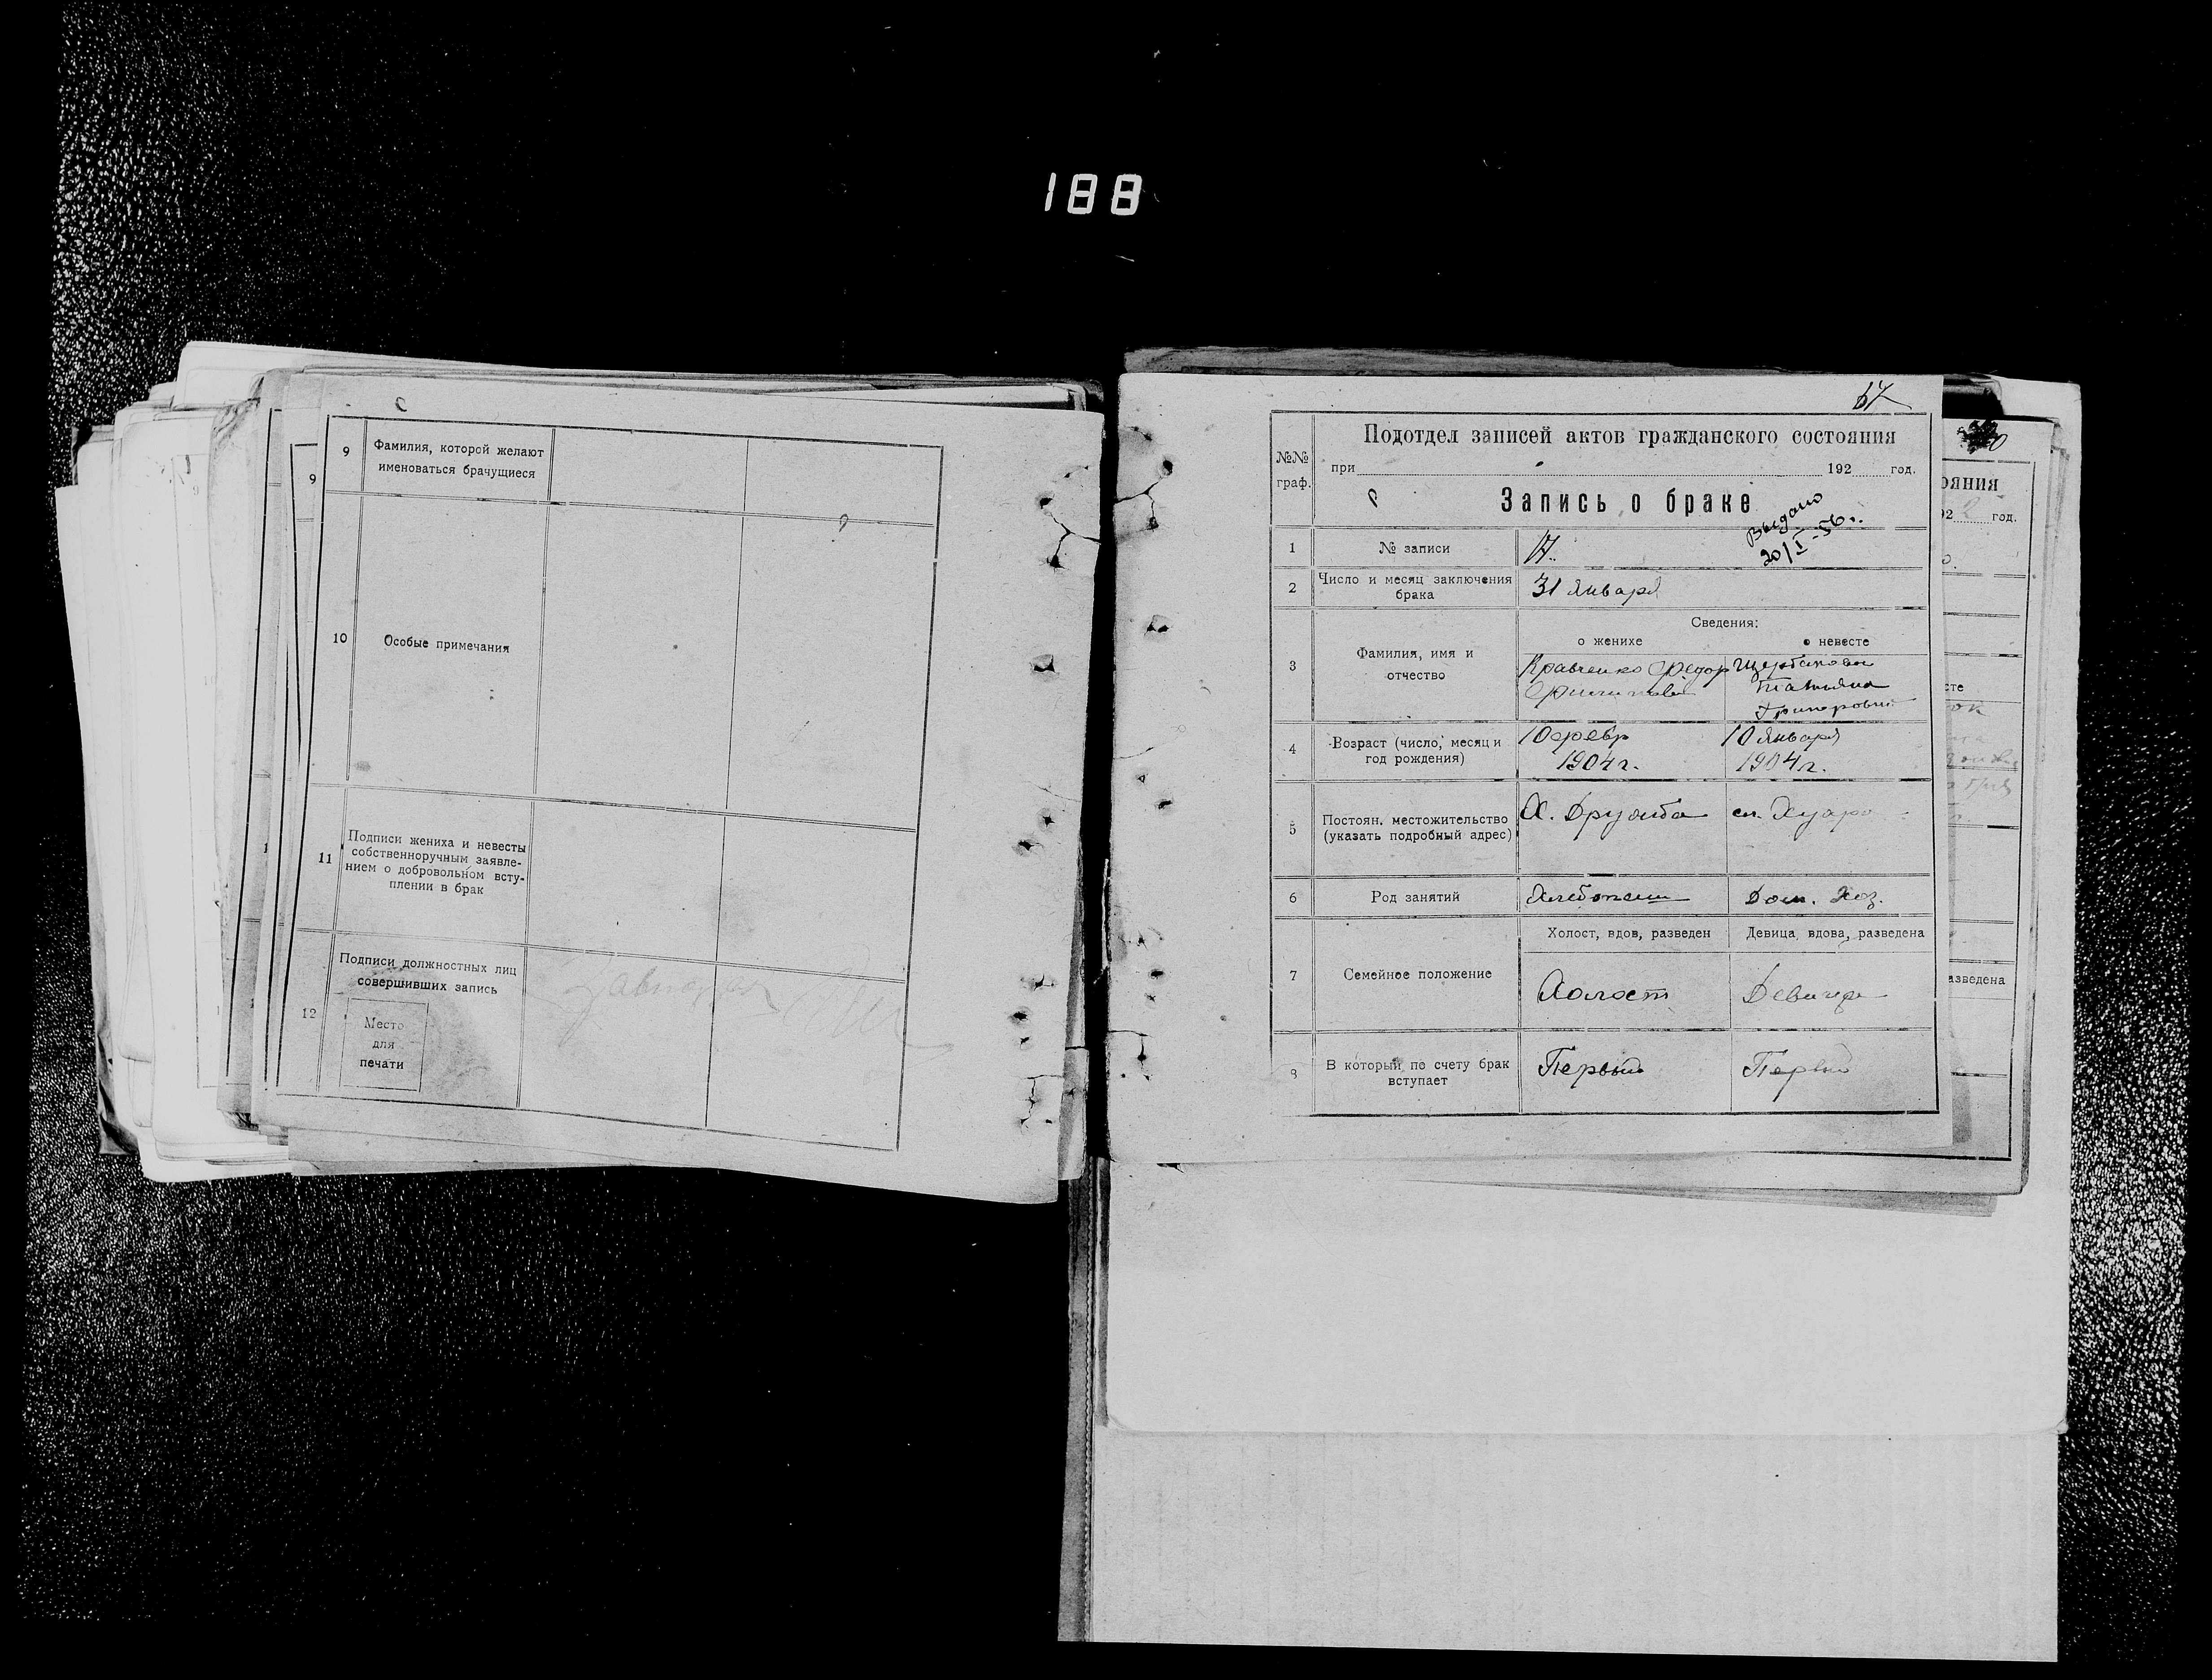 188
9
Фамилия, которой желают
именоваться брачущиеся
9
10
Особые примечания
11
Подписи жениха и невесты
собственноручным заявле-
нием о добровольном всту-
плении в брак
12
Подписи должностных лиц
совершивших запись
Место
для
печати
№№
граф.
Подотдел записей актов гражданского состояния
при 192 год.
Запись о браке
Выдано
20/I-56г.
1
№ записи
17.
2
Число и месяц заключения
брака
31 января
3
Фамилия, имя и
отчество
Сведения:
о женихе
о невесте
Кравченко Федор
Щербакова
Татьяна
4
Возраст (число, месяц и
год рождения)
10 февр
1904 г.
10 января
1904 г.
5
Постоян. местожительство
(указать подробный адрес)
Х. Дружба
ст.
6
Род занятий
Дом. Хоз.
7
Семейное положение
Холост, вдов, разведен
Девица, вдова, разведена
Холост
Девица
8
В который по счету брак
вступает
Первый
Первый
ояния
922 год.
сте
азведена